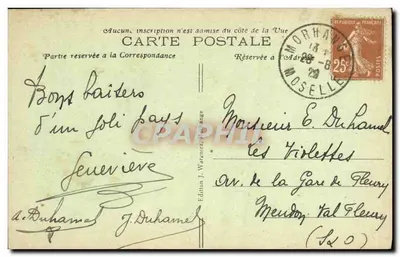 Aucun, inscription n'est admise du côté de la Vue
CARTE POSTALE
Partie reservée a la Correspondance
Réservée a l'Adresse
MORHANGE
13
28-8
29
MOSELLE
REPUBLIQUE FRANÇAISE
25c
POSTES
Bons baisers
d'un joli pays
Geneviève
A. Duhamel
J. Duhamel
Monsieur E. Duhamel
Les Violettes
av. de la Gare de Fleury
Meudon Val Fleury
(S&O)
Edition J.